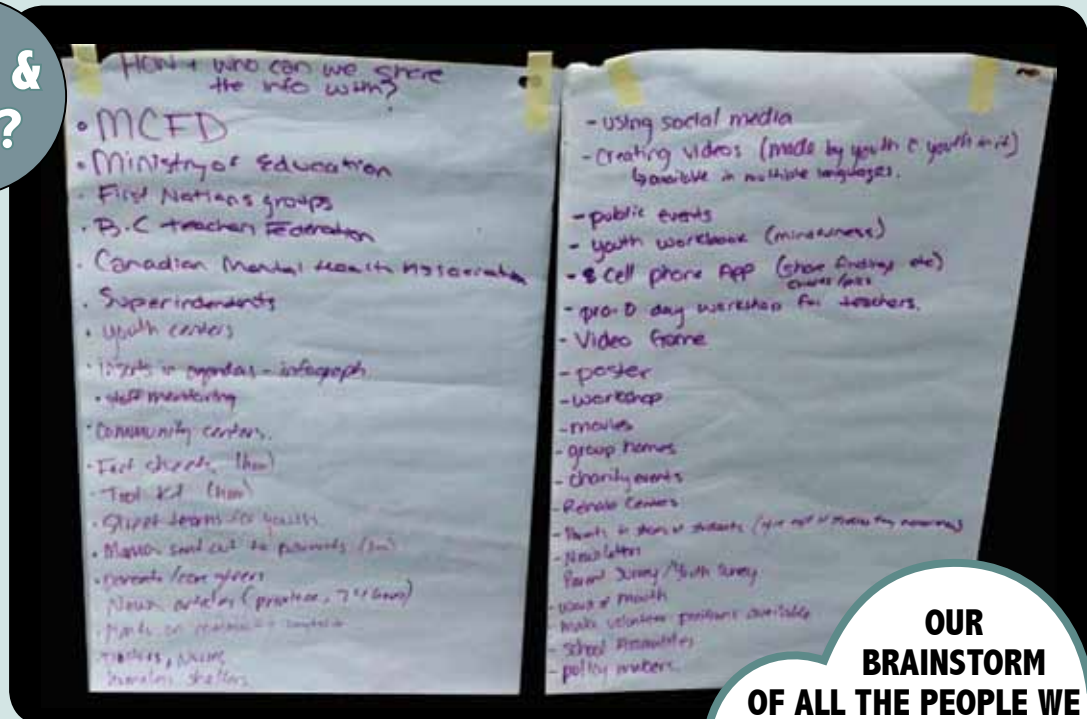 &
?
HOW + who can we share
the info with?
• MCFD
• Ministry of Education
• First Nations groups
• B.C teacher Federation
• Canadian Mental Health
• Superindendents
• youth centers
• in agendas - infograph
• staff mentoring
• Community centers.
• Fact sheets (how)
• Tool kit (how)
• Street teams for youth
• sent out to parents
• parents / care givers
News articles (province, 24 hours)
• Hands on
, Nurses
homeless shelters
- using social media
- Creating videos (made by youth c youth in it)
↳ available in multiple languages.
- public events
- youth workbook
- cell phone App (share findings etc)
- pro-D day workshop for teachers.
- Video Game
- poster
- workshop
- movies
- group homes
- charity events
- Rehab Centers
- students
- Newsletters
Parent Survey / Youth Survey
- word of mouth
make volunteer positions available
- School Assemblies
- policy makers.
OUR
BRAINSTORM
OF ALL THE PEOPLE WE